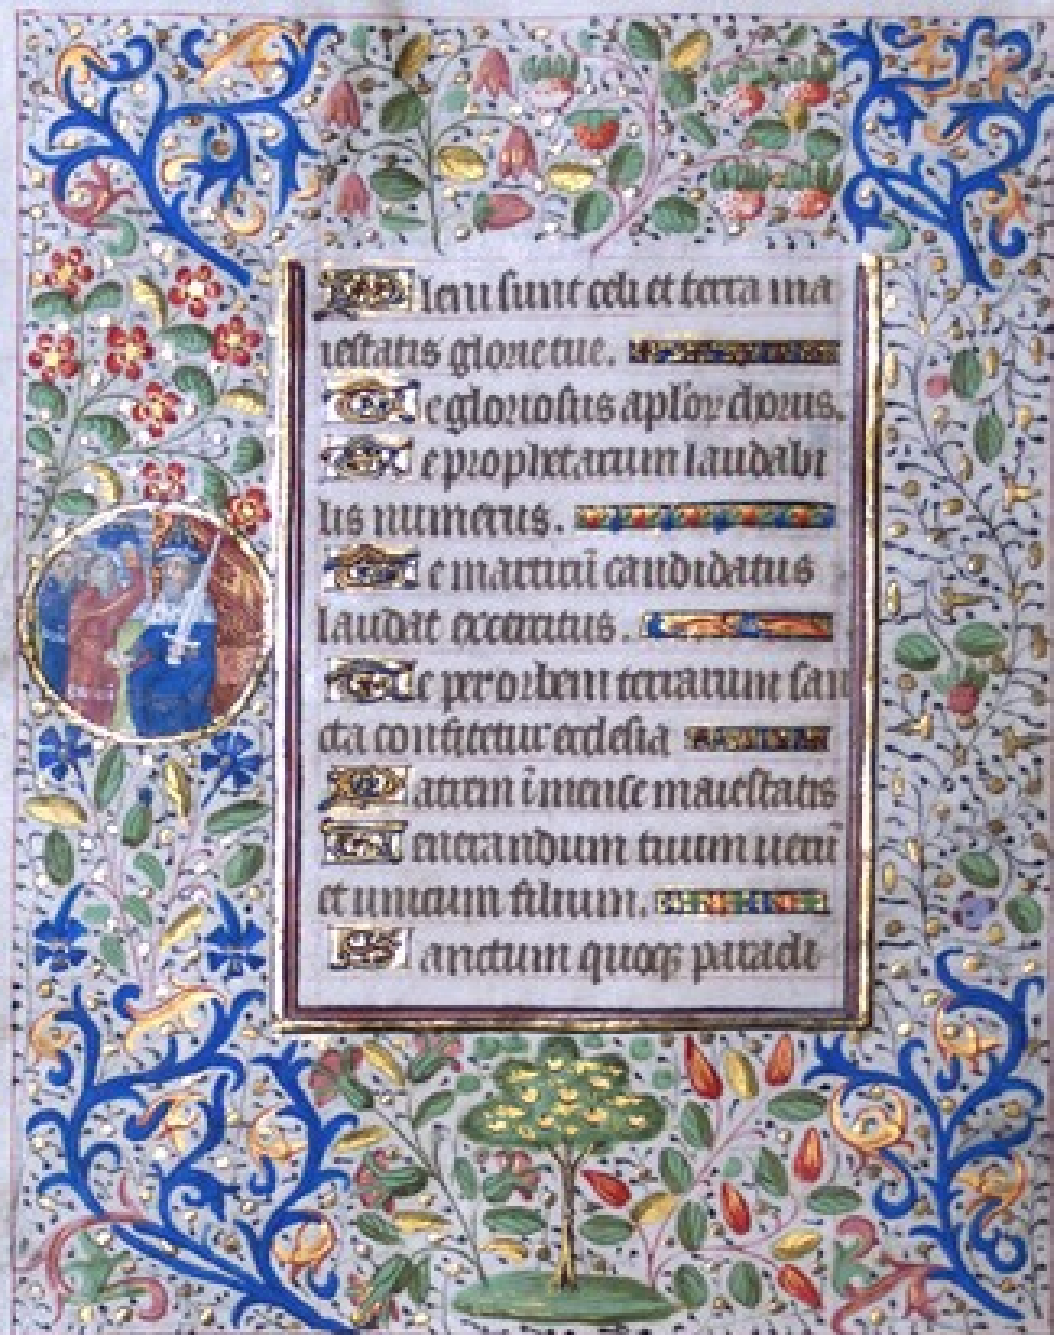 Pleni sunt celi et terra ma
iestatis glorie tue.
Te gloriosus aplõꝝ chorus.
Te prophetarum laudabi
lis numerus.
Te martirũ candidatus
laudat exercitus.
Te per orbem terrarum san
cta confitetur ecclesia
Patrem ĩmense maiestatis
Venerandum tuum uerũ
et unicum filium.
Sanctum quoqꝫ paracli